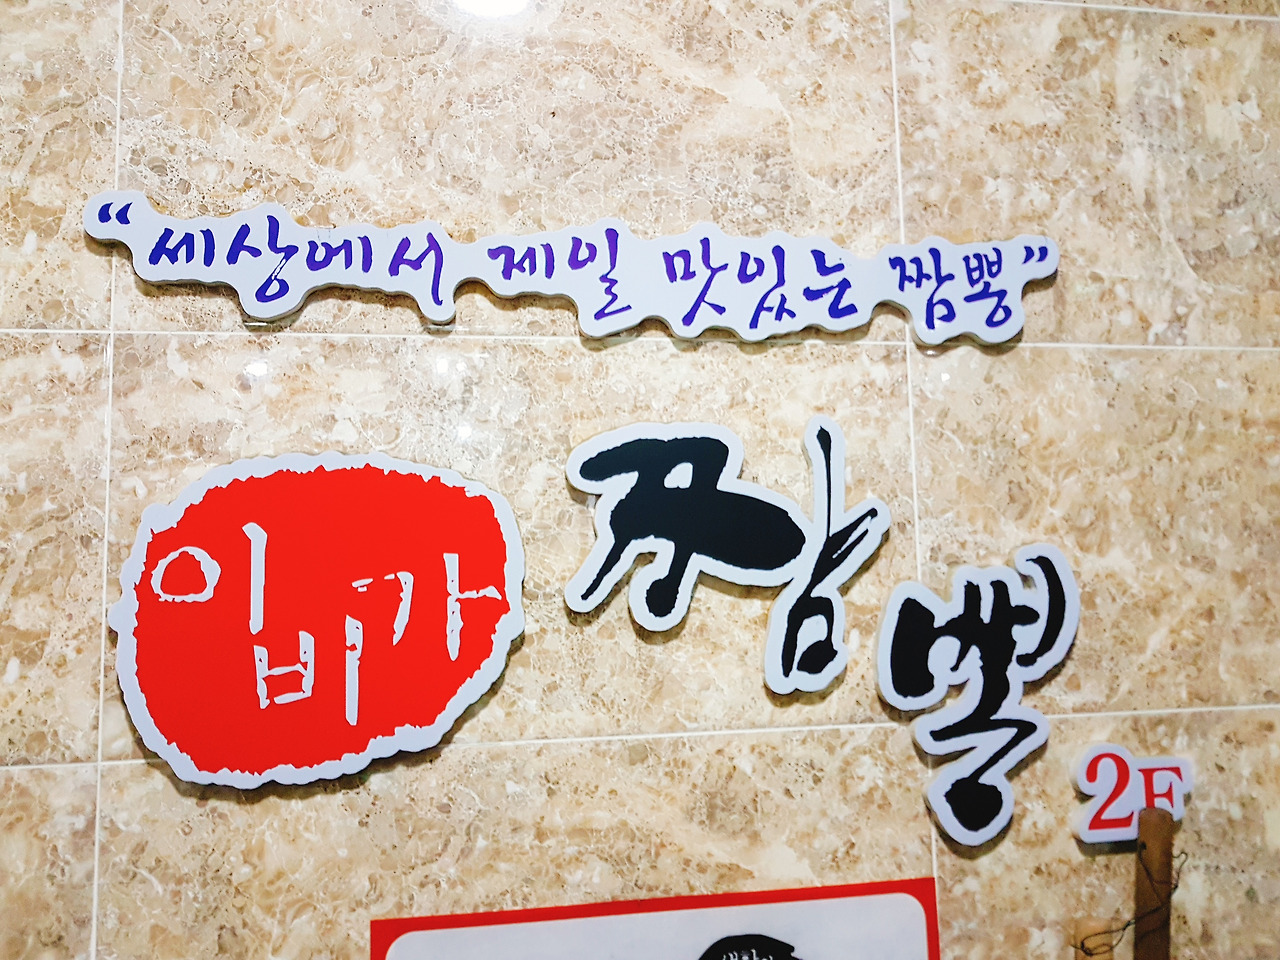 “세상에서 제일 맛있는 짬뽕”
이비가 짬뽕
2F